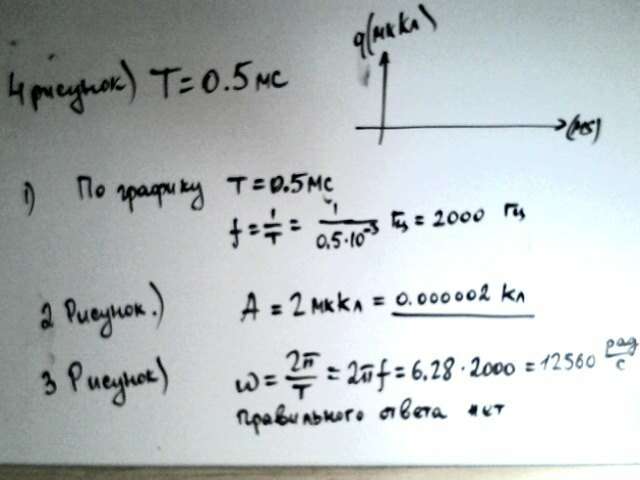 q(мккл)
4 рисунок) T = 0.5 мс
(мs)
1) По графику T = 0.5 мс
f = 1/T = 1/0.5·10⁻³ Гц = 2000 Гц
2 Рисунок.) A = 2 мккл = 0.000002 кл
3 Рисунок) ω = 2π/T = 2πf = 6.28 · 2000 = 12560 рад/с
правильного ответа нет